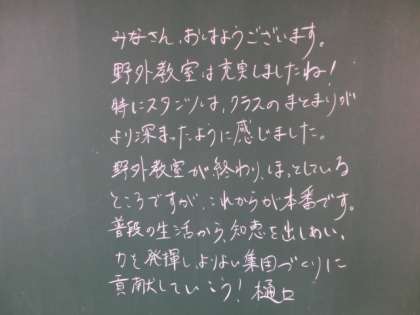 みなさん、おはようございます。
野外教室は充実しましたね!
特にスタンツは、クラスのまとまりが
より深まったように感じました。
野外教室が終わり、ほっとしている
ところですが、これからが本番です。
普段の生活から、知恵を出しあい、
力を発揮しよりよい集団づくりに
貢献していこう! 樋口